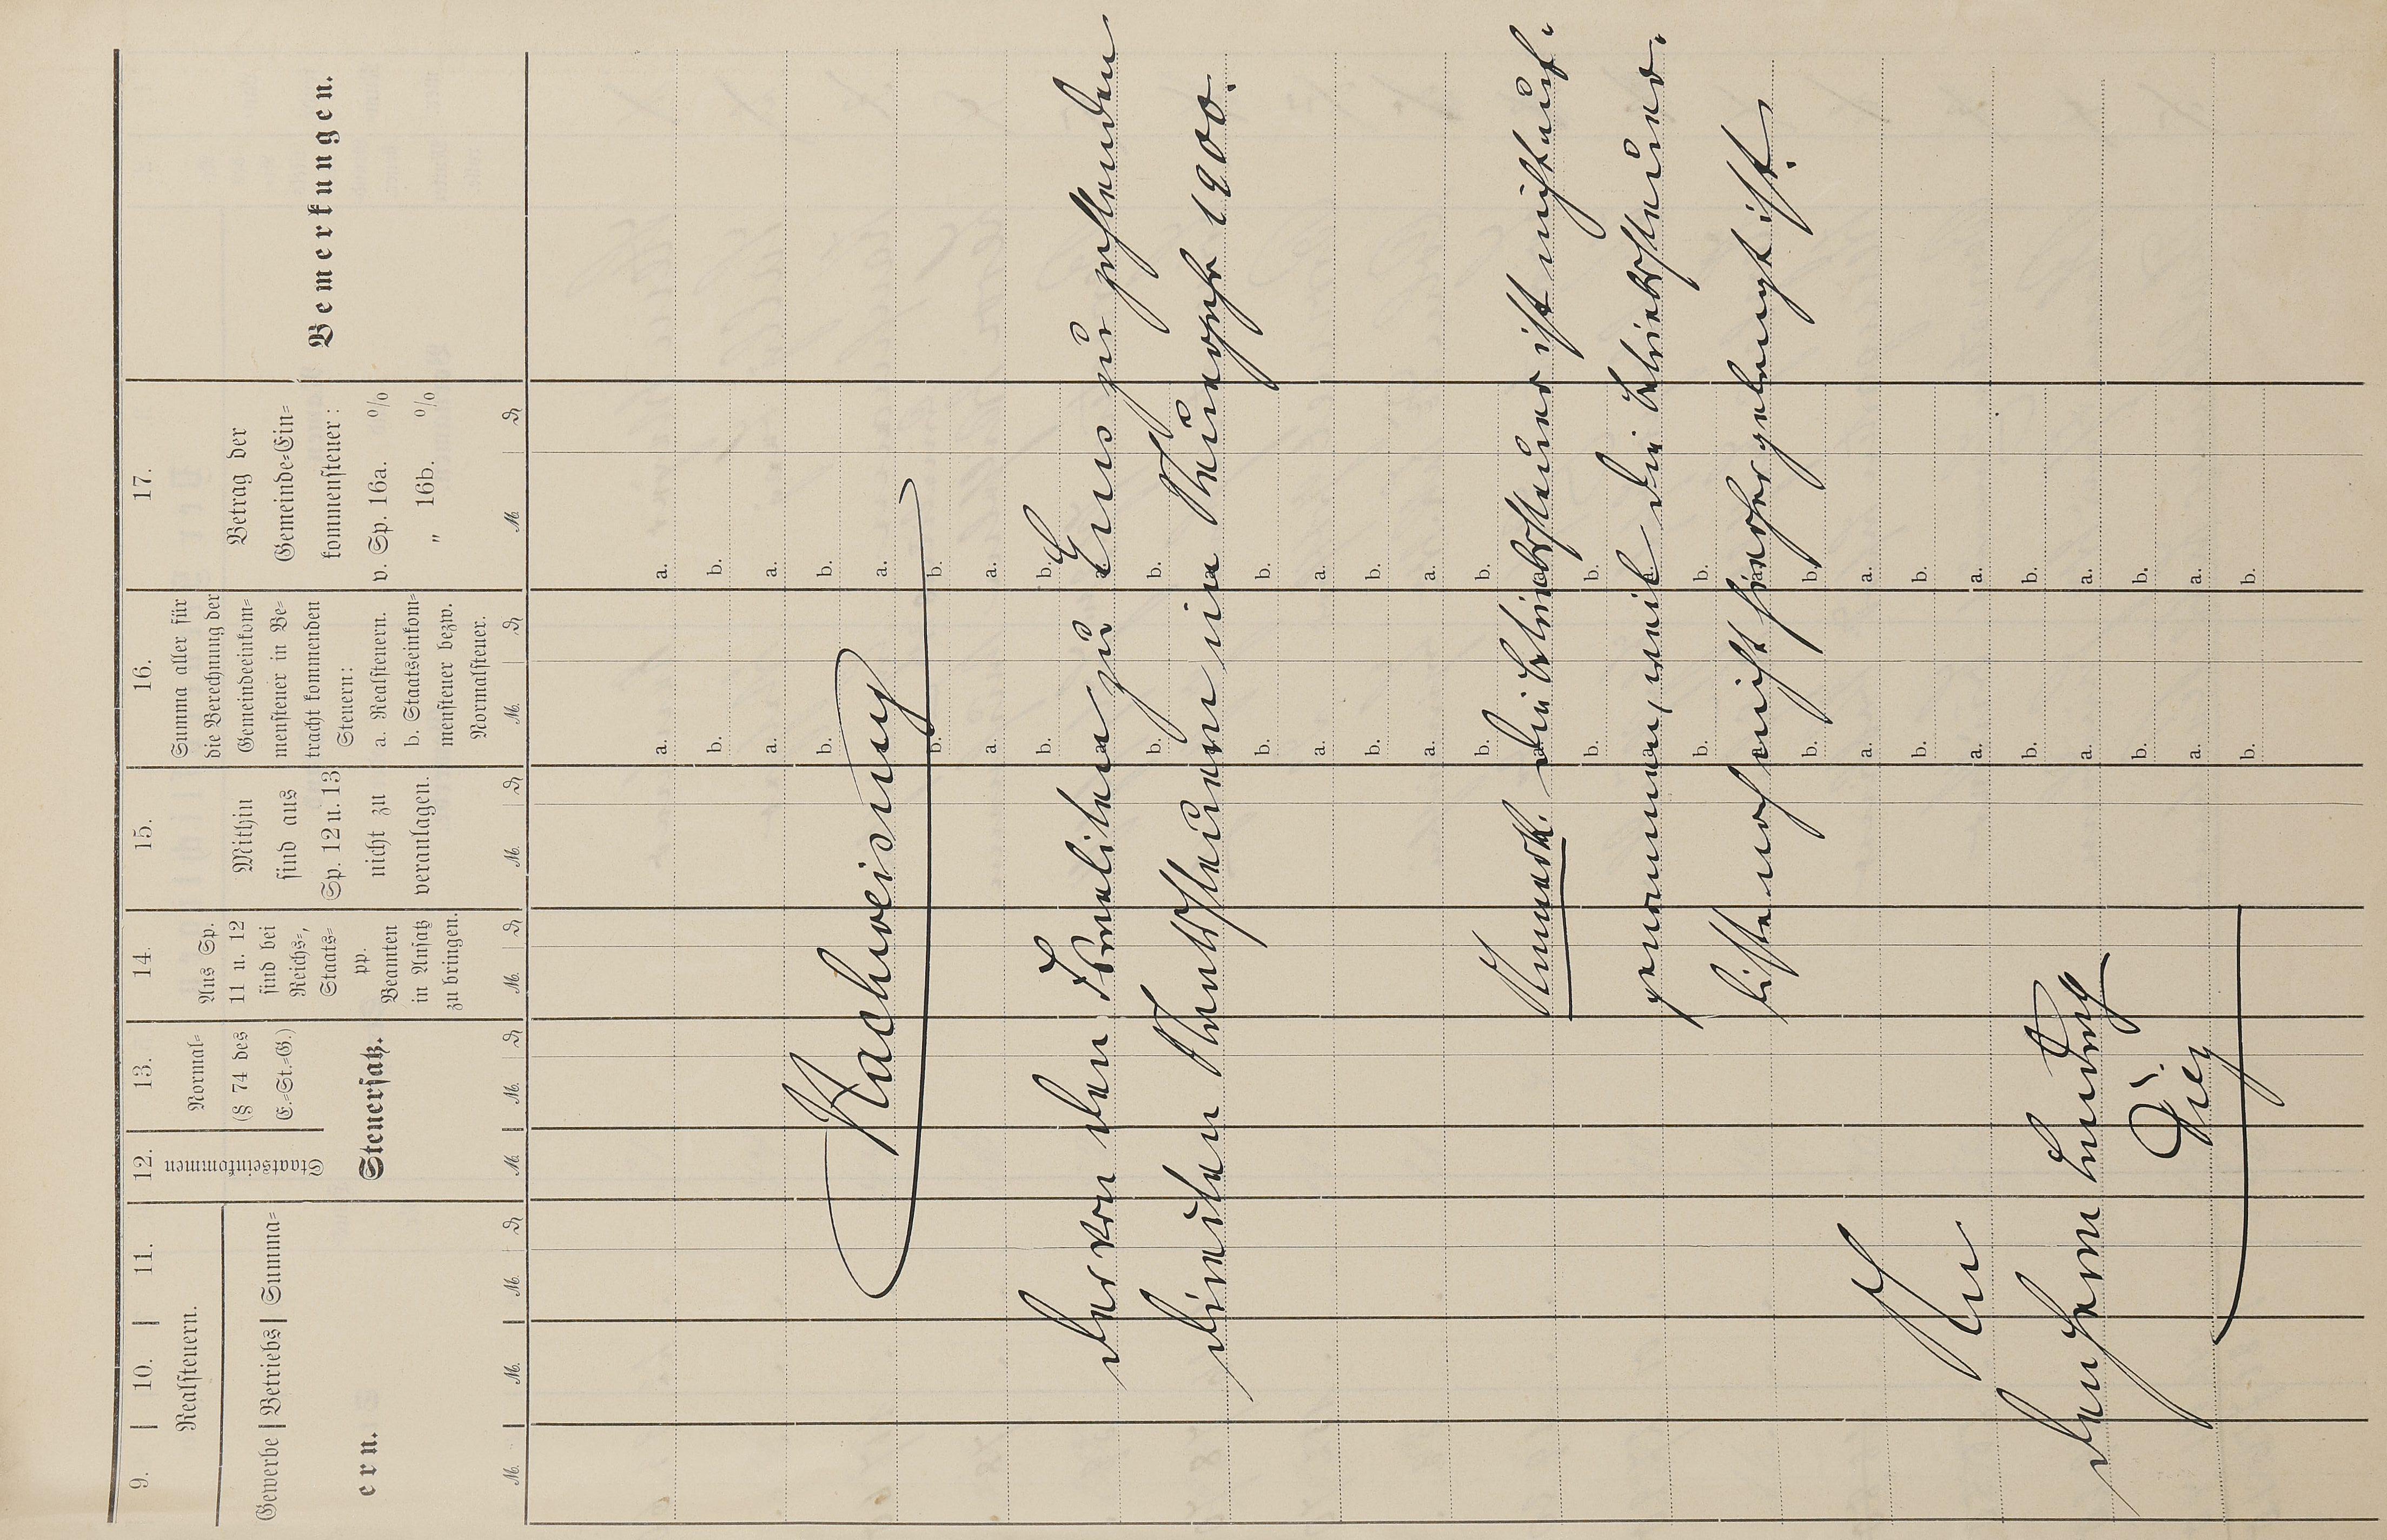 9. | 10. | 11.
Realsteuern.
Gewerbe | Betriebs | Summa-
ern.
M. M. M. ₰
12.
Staatseinkommen
13.
Normal-
(§ 74 des
E.-St.-G.)
Steuersatz.
M. M. ₰
14.
Aus Sp.
11 u. 12
sind bei
Reichs-,
Staats-
pp.
Beamten
in Ansatz
zu bringen.
M. ₰
15.
Mithin
sind aus
Sp. 12 u. 13
nicht zu
veranlagen.
M. ₰
16.
Summa aller für
die Berechnung der
Gemeindeeinkom-
mensteuer in Be-
tracht kommenden
Steuern:
a. Realsteuern.
b. Staatseinkom-
mensteuer bezw.
Normalsteuer.
M. ₰
17.
Betrag der
Gemeinde-Ein-
kommensteuer:
v. Sp. 16a. %
„ 16b. %
M. ₰
Bemerkungen.
Nachweisung
der von den Israeliten zu Ems zu zahlenden
direkten Staatssteuern im Steuerjahr 1900.
Anmerk. die Betriebssteuer ist nicht auf-
genommen, weil die Betriebssteuer-
liste noch nicht hierher gelangt ist.
An
den Herrn Landrath
Diez